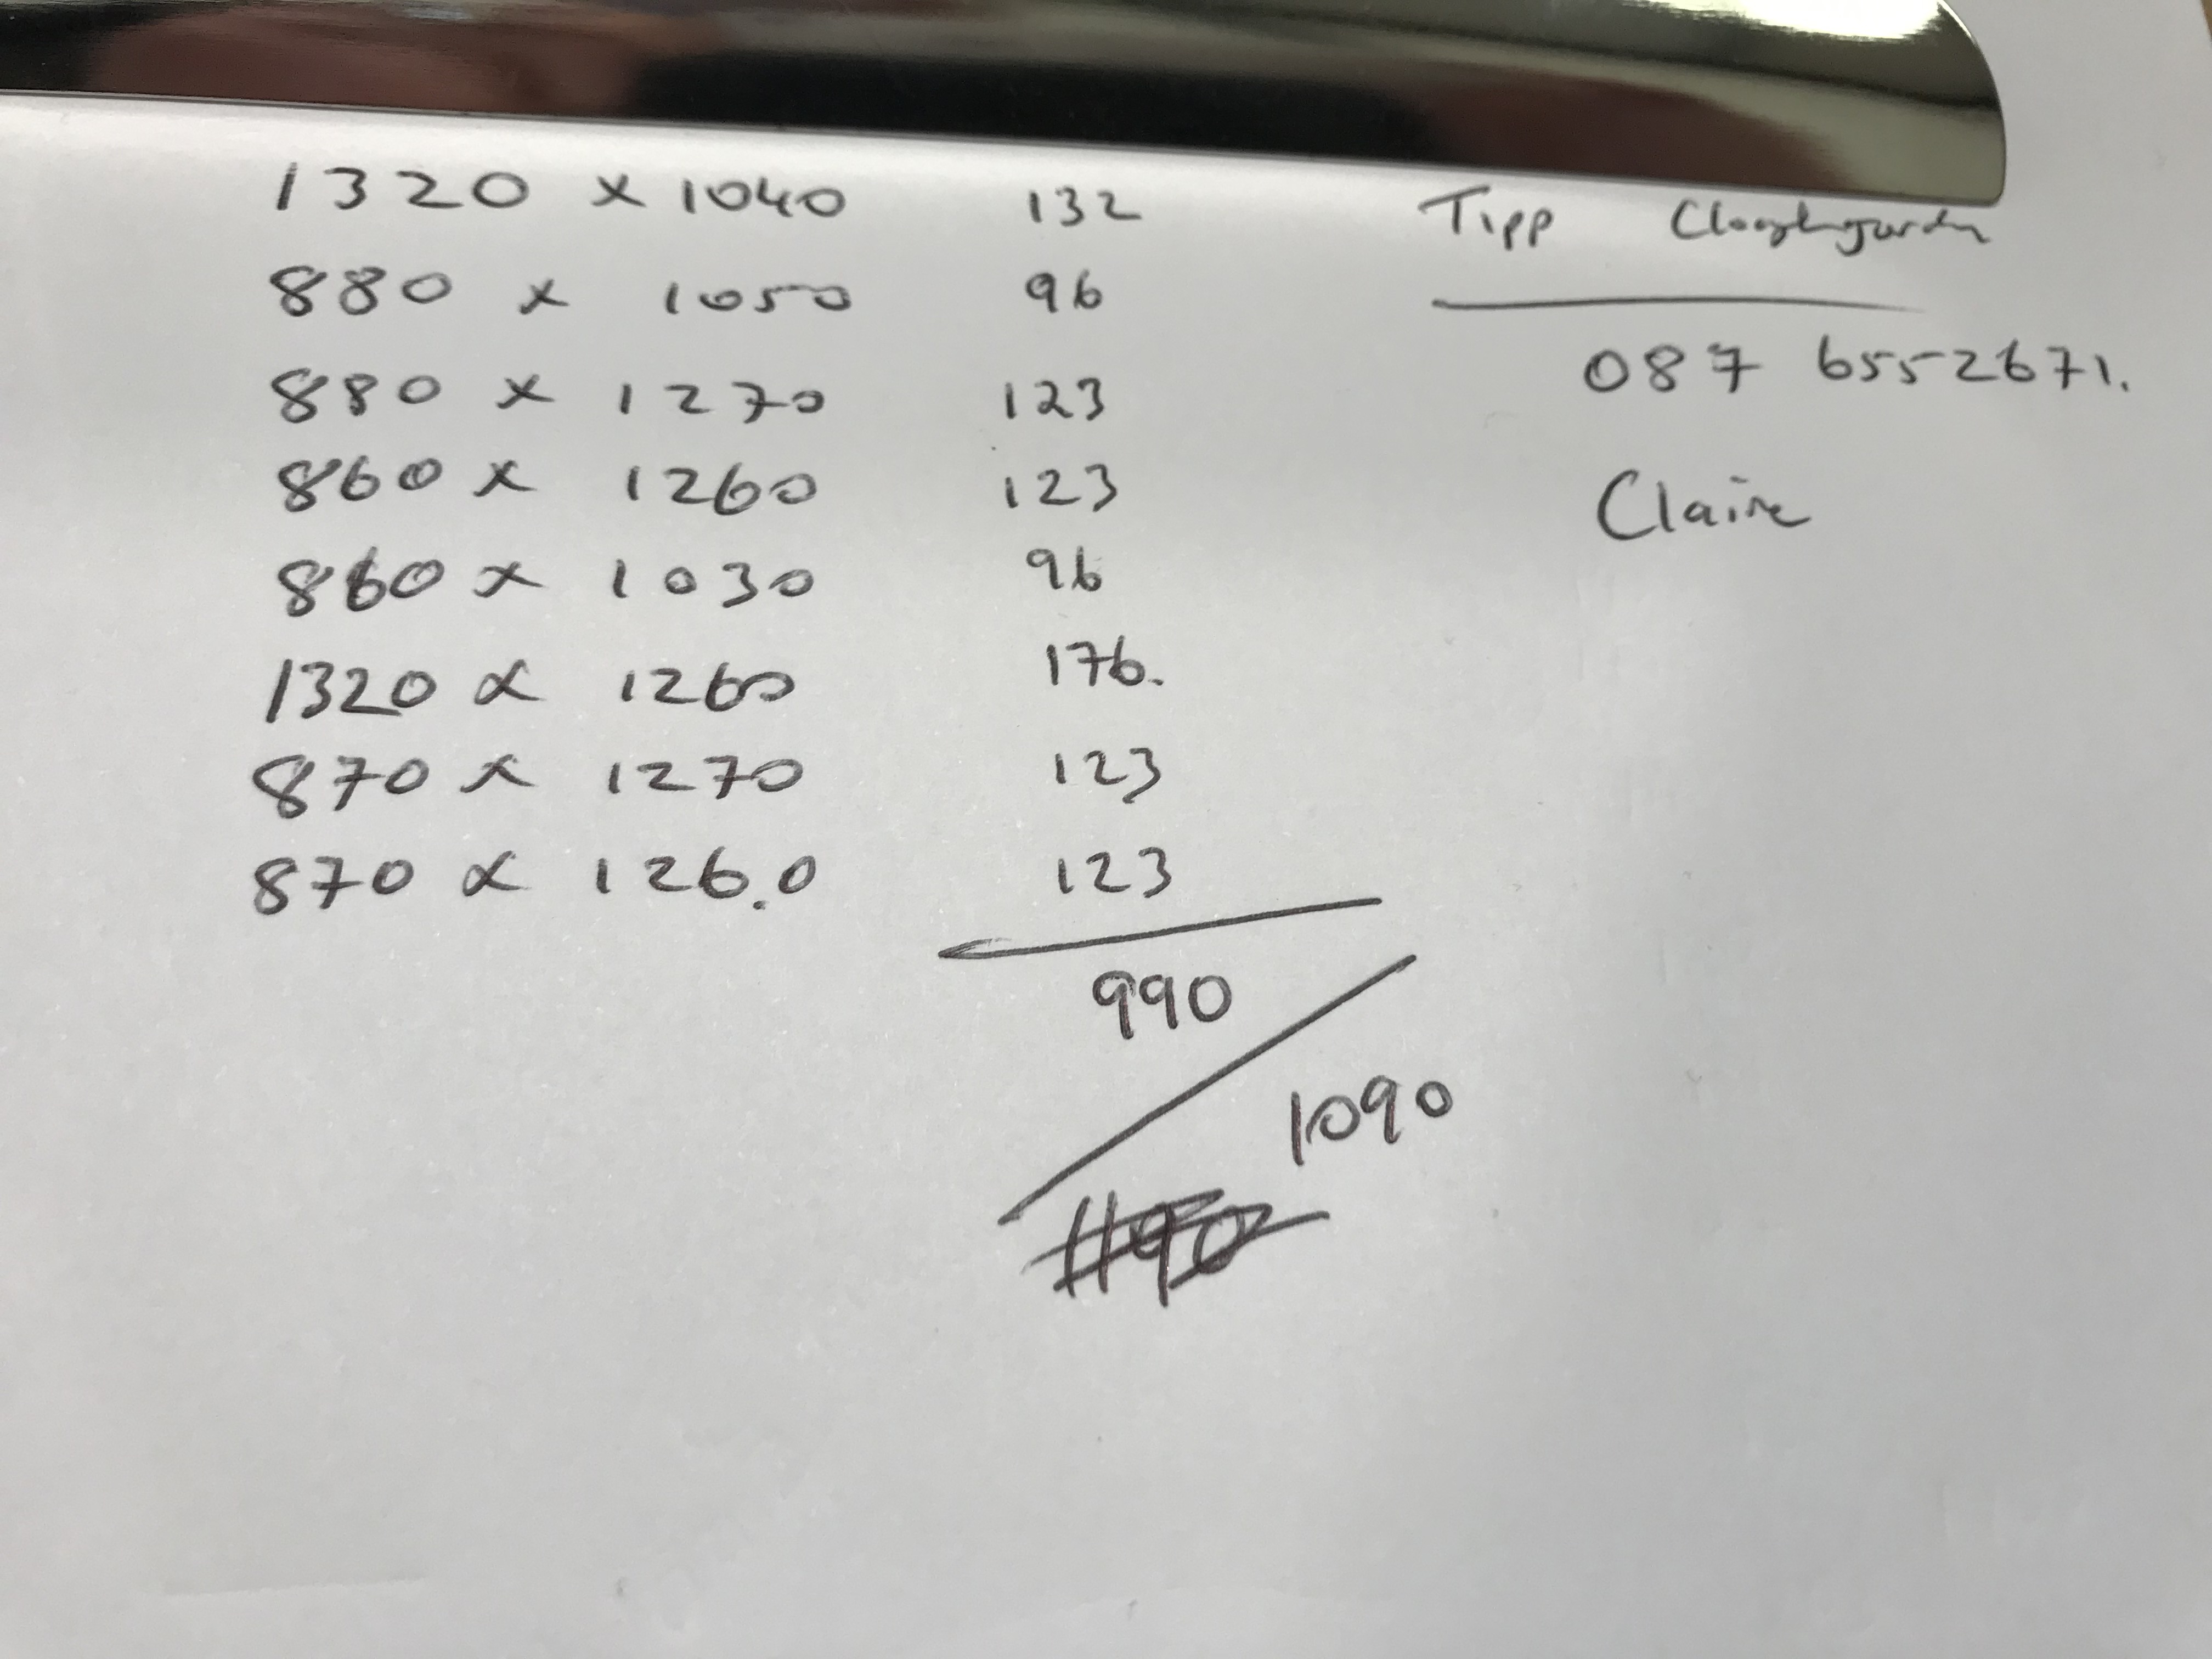 1320 x 1040 132 Tipp
880 x 1050 96
880 x 1270 123 087 6552671.
860 x 1260 123 Claire
860 x 1030 96
1320 x 1260 176.
870 x 1270 123
870 x 126.0 123
990
1090